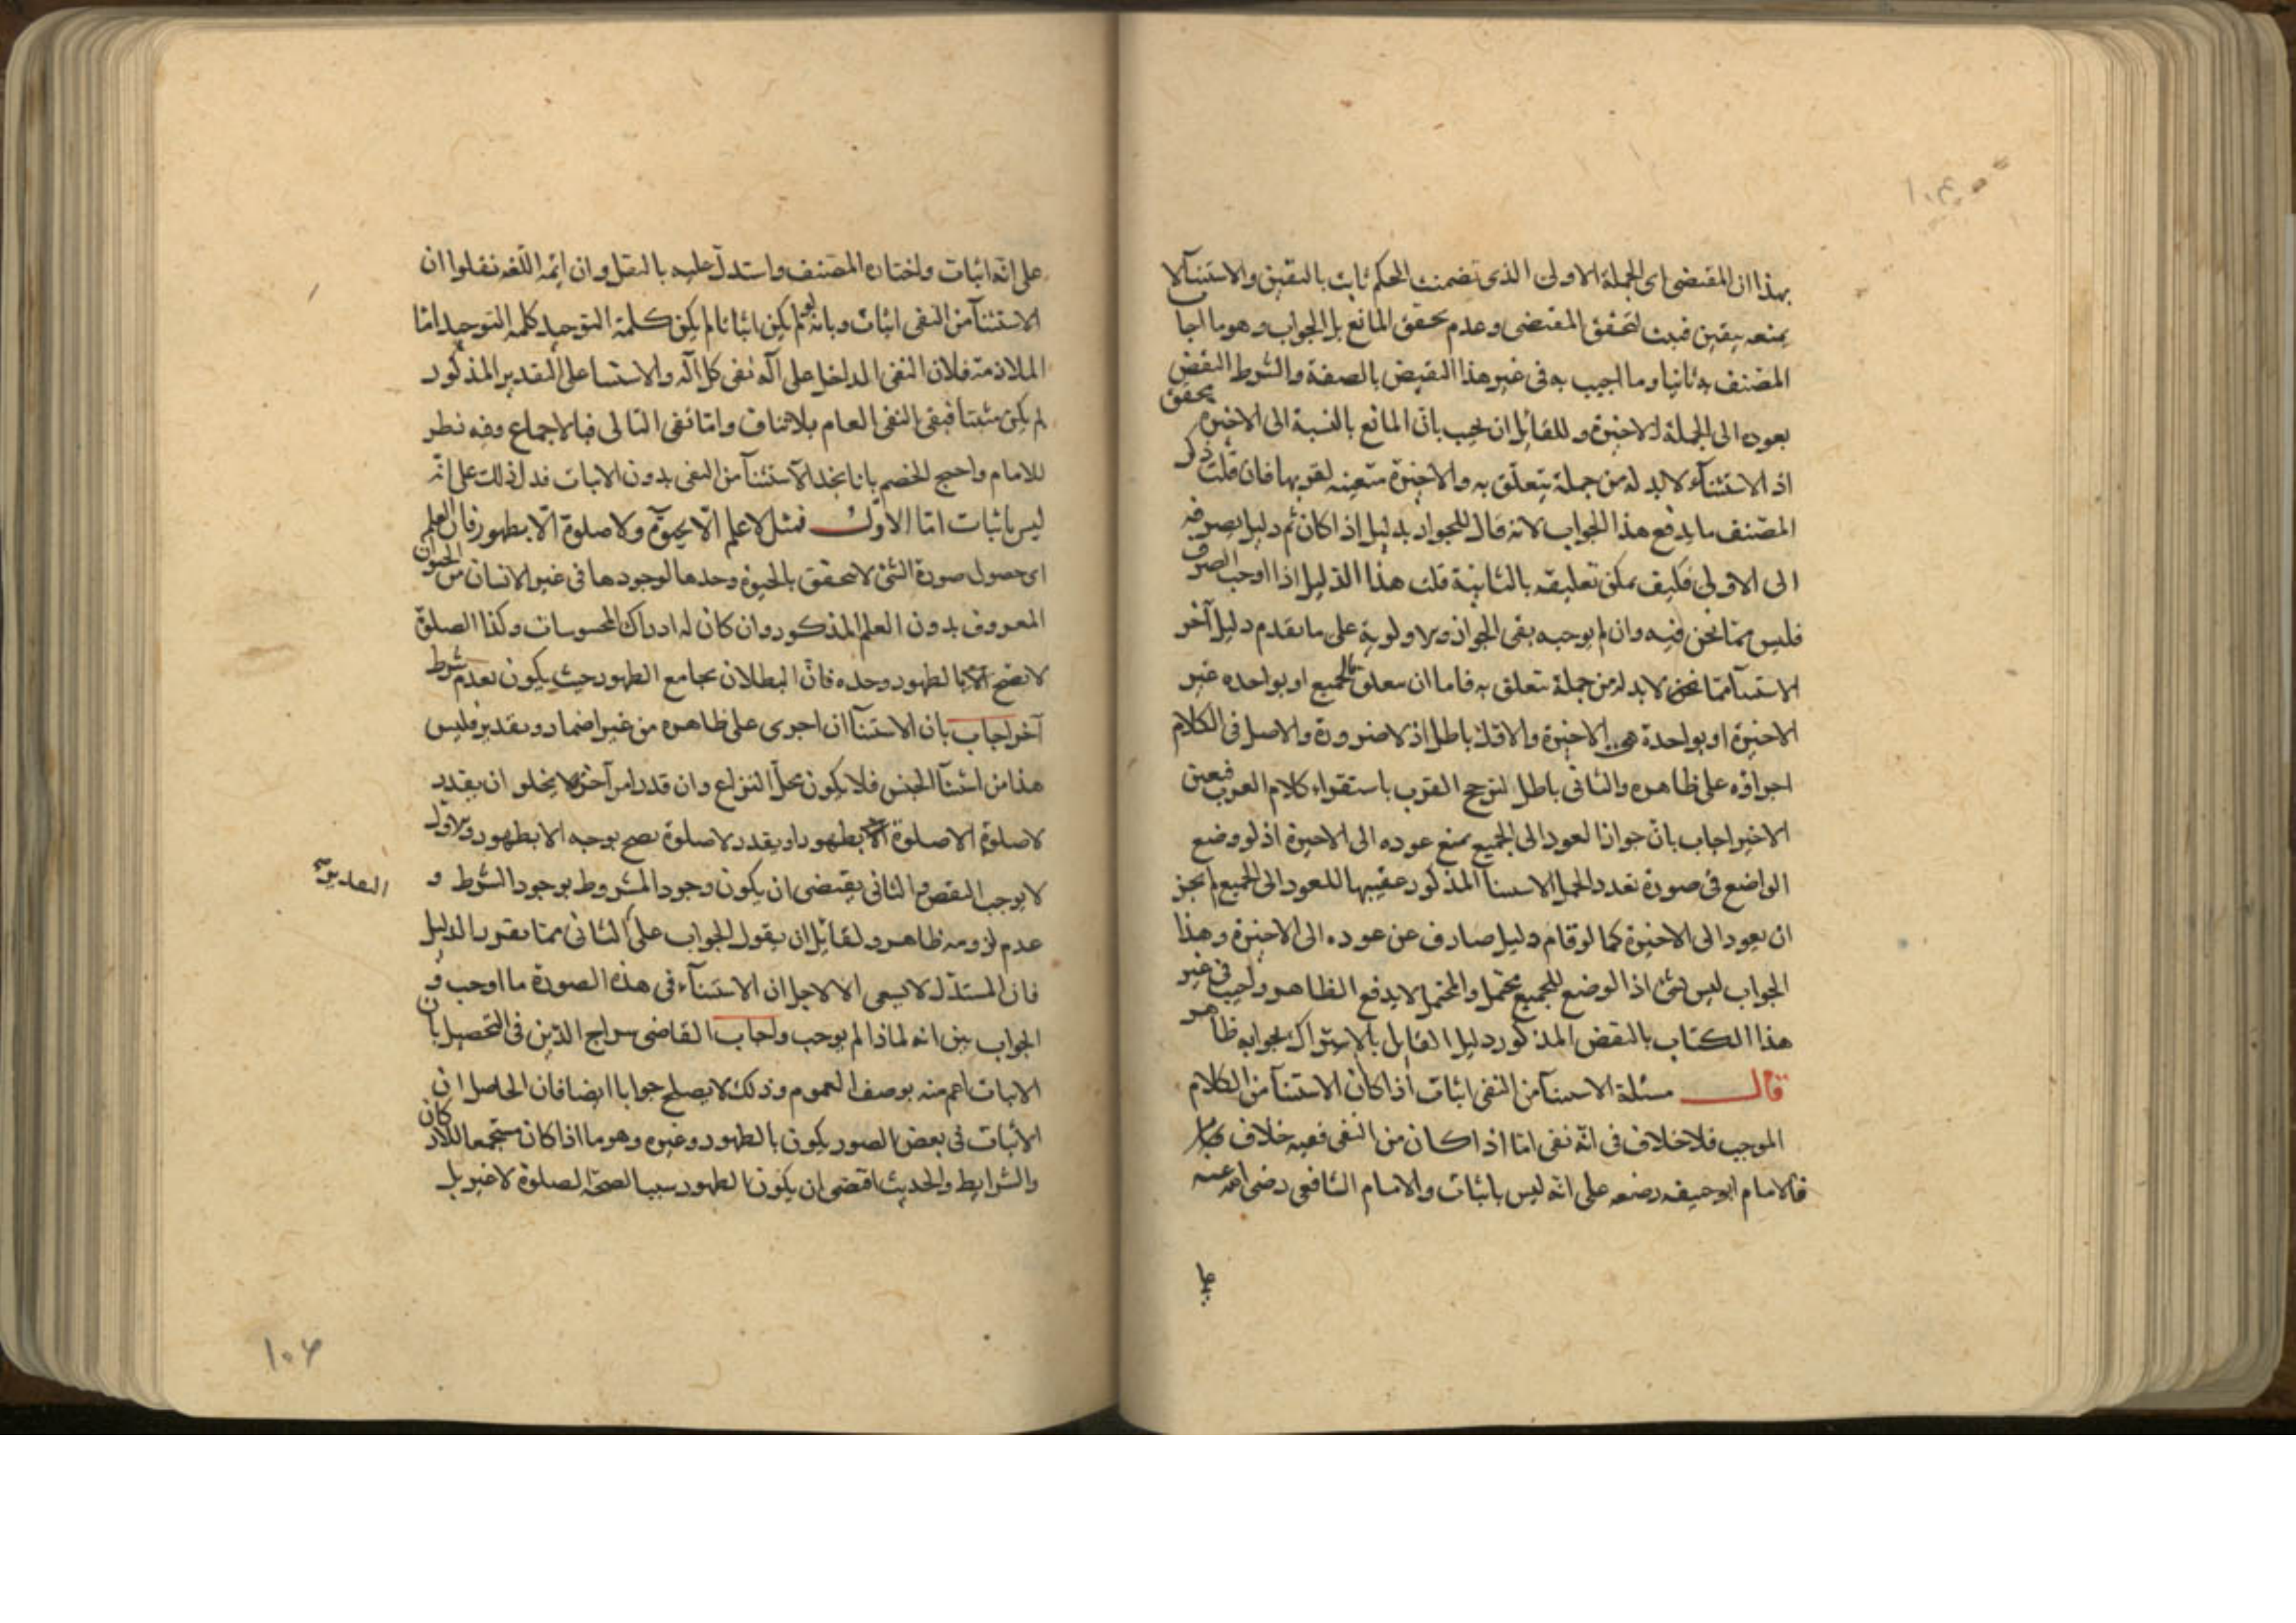 بهذا ان المقتضى اى الجملة الاولى الذى تضمنت الحكم ثابت باليقين والاستثنآ لا
يمنعه بيقين فيثبت لتحقق المقتضى وعدم تحقق المانع بل الجواب وهو ما اجا
المصنف به ثانيا وما اجيب به فى غير هذا النقيض بالصفة والشرط النقض
بعوده الى الجملة الاخيرة وللقائل ان يجيب بان المانع بالنسبة الى الاخيرة يتحقق
اذ الاستثنآء لابد له من جملة يتعلق به والاخيرة متعينه لقربها فان قلت ذكر
المصنف ما يدفع هذا الجواب لانه قال للجواز بدليل اذا كان ثم دليل يصرفه
الى الاولى فكيف يمكن تعليقه بالثانية قلت هذا الدليل اذا اوجب الصرف
فليس مما نحن فيه وان لم يوجبه بقى الجواز والاولوية على ما تقدم دليل آخر
الاستثنآ مما نحن لابد له من جملة تتعلق به فاما ان يتعلق بالجميع او بواحده غير
الاخيرة او بواحدة هى الاخيرة والاول باطل اذ لا ضرورة والاصل فى الكلام
اجراؤه على ظاهره والثانى باطل لترجح القرب باستقراء كلام العرب فتعين
الاخير اجاب بان جواز العود الى الجميع يمنع عوده الى الاخيرة اذ لو وضع
الواضع فى صورة تعدد الجمل الاستثنآ المذكور عقيبها للعود الى الجميع لم يجز
ان يعود الى الاخيرة كما لو قام دليل صارف عن عوده الى الاخيرة وهذا
الجواب ليس بشئ اذ الوضع للجميع محتمل والمحتمل لا يدفع الظاهر واجيب فى غير
هذا الكتاب بالنقض المذكور دليل القايل بالاشتراك بجوابه ظاهر
قال مسئلة الاستثنآ من النفى اثبات اذا كان الاستثنآ من الكلام
الموجب فلا خلاف فى انه نفى اما اذا كان من النفى ففيه خلاف
فالامام ابو حنيفه رضعه على انه ليس باثبات والامام الشافعى رضى الله عنه
على
على انه اثبات واختاره المصنف واستدل عليه بالنقل وان ايمه اللغه نقلوا ان
الاستثنآ من النفى اثبات وبانه لو لم يكن اثباتا لم يكن كلمة التوحيد كلمه التوحيد اما
الملازمة فلان النفى الداخل على آله نفى كل آله والاستثنا على التقدير المذكور
لم يكن مثبتا فبقى النفى العام بلا تناف واما نفى التالى فبالاجماع وفيه نظر
للامام واحتج الخصم بانا نجد الاستثنآ من النفى بدون الاثبات فدل ذلك على انه
ليس باثبات اما الاول فمثل لا علم الا بحيوة ولا صلوة الا بطهور فان العلم
اى حصول صورة الشئ لا يتحقق بالحيوة وحدها لوجودها فى غير الانسان من الحيوان
المعروف بدون العلم المذكور وان كان له ادراك المحسوسات وكذا الصلوة
لا تصح بالطهور وحده فان البطلان يجامع الطهور حيث يكون لعدم شرط
آخر اجاب بان الاستثنآ ان اجرى على ظاهره من غير اضمار وتقدير فليس
هذا من استثنآ الجنس فلا يكون محل النزاع وان قدر امر آخر لا يخلو ان يقدر
لا صلوة الا صلوة بطهور او يقدر لا صلوة تصح بوجه الا بطهور والاول
لا يوجب النقض والثانى يقتضى ان يكون وجود المشروط بوجود الشرط و
عدم لزومه ظاهر ولقائل ان يقول الجواب على الثانى مما يقرر الدليل
فان المستدل لا يسعى الا لاجل ان الاستثنآء فى هذه الصورة ما اوجب و
الجواب بين انه لماذا لم يوجب واجاب القاضى سراج الدين فى التحصيل بان
الاثبات اعم منه بوصف العموم وذلك لا يصلح جوابا ايضا فان الحاصل ان
الاثبات فى بعض الصور يكون بالطهور وغيره وهو ما اذا كان مستجمعا للاركان
والشرايط والحديث اقتضى ان يكون الطهور سببا لصحة الصلوة لا غير بل
١٠٦